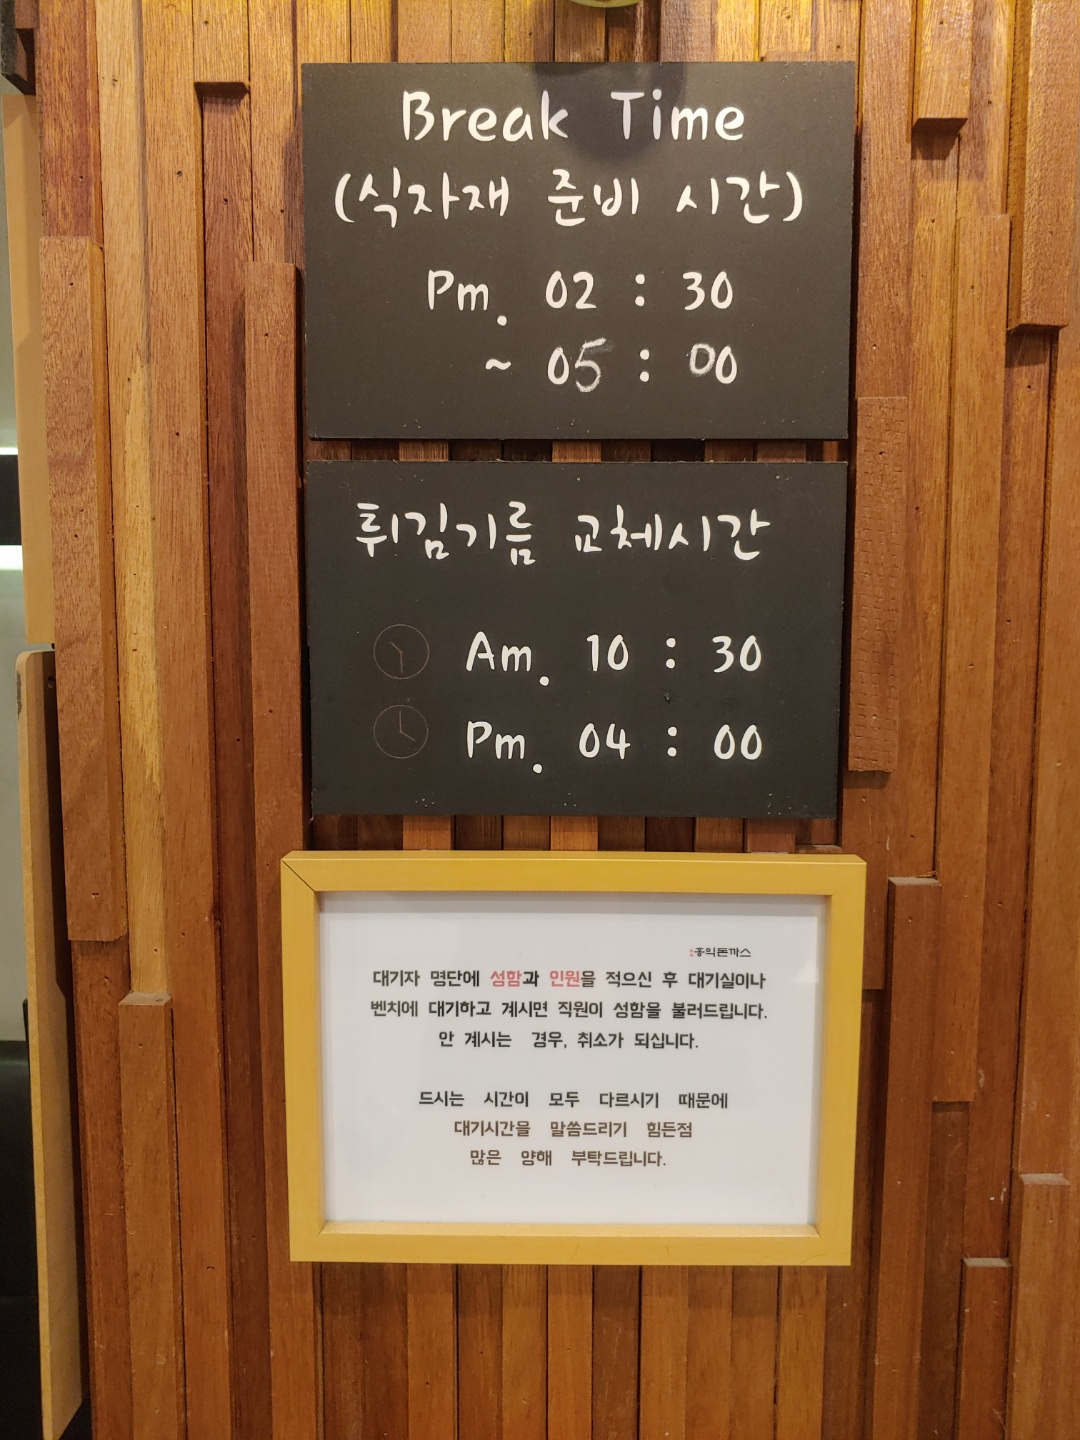 Break Time
(식자재 준비 시간)
Pm. 02 : 30
~ 05 : 00
튀김기름 교체시간
Am. 10 : 30
Pm. 04 : 00
:홍익돈까스
대기자 명단에 성함과 인원을 적으신 후 대기실이나
벤치에 대기하고 계시면 직원이 성함을 불러드립니다.
안 계시는 경우, 취소가 되십니다.
드시는 시간이 모두 다르시기 때문에
대기시간을 말씀드리기 힘든점
많은 양해 부탁드립니다.